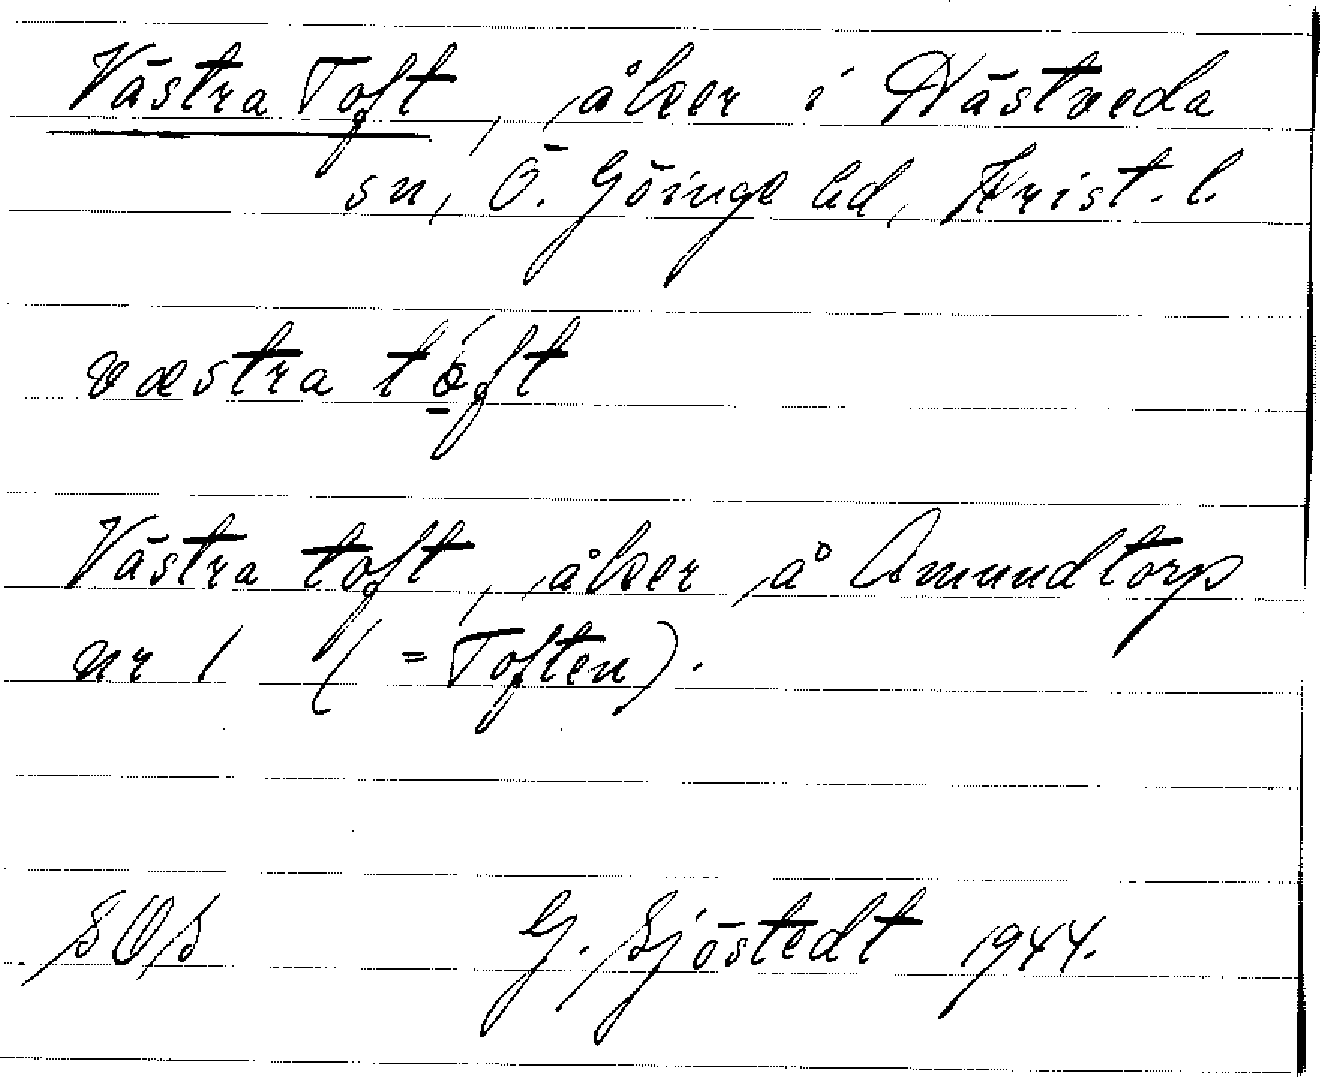 Västra Toft, åker i Hästveda
sn, Ö. Göinge hd, Krist. l.
væstra tọ́ft
Västra toft, åker å Amundtorp
nr 1 (= Toften).
SOS G. Sjöstedt 1944.